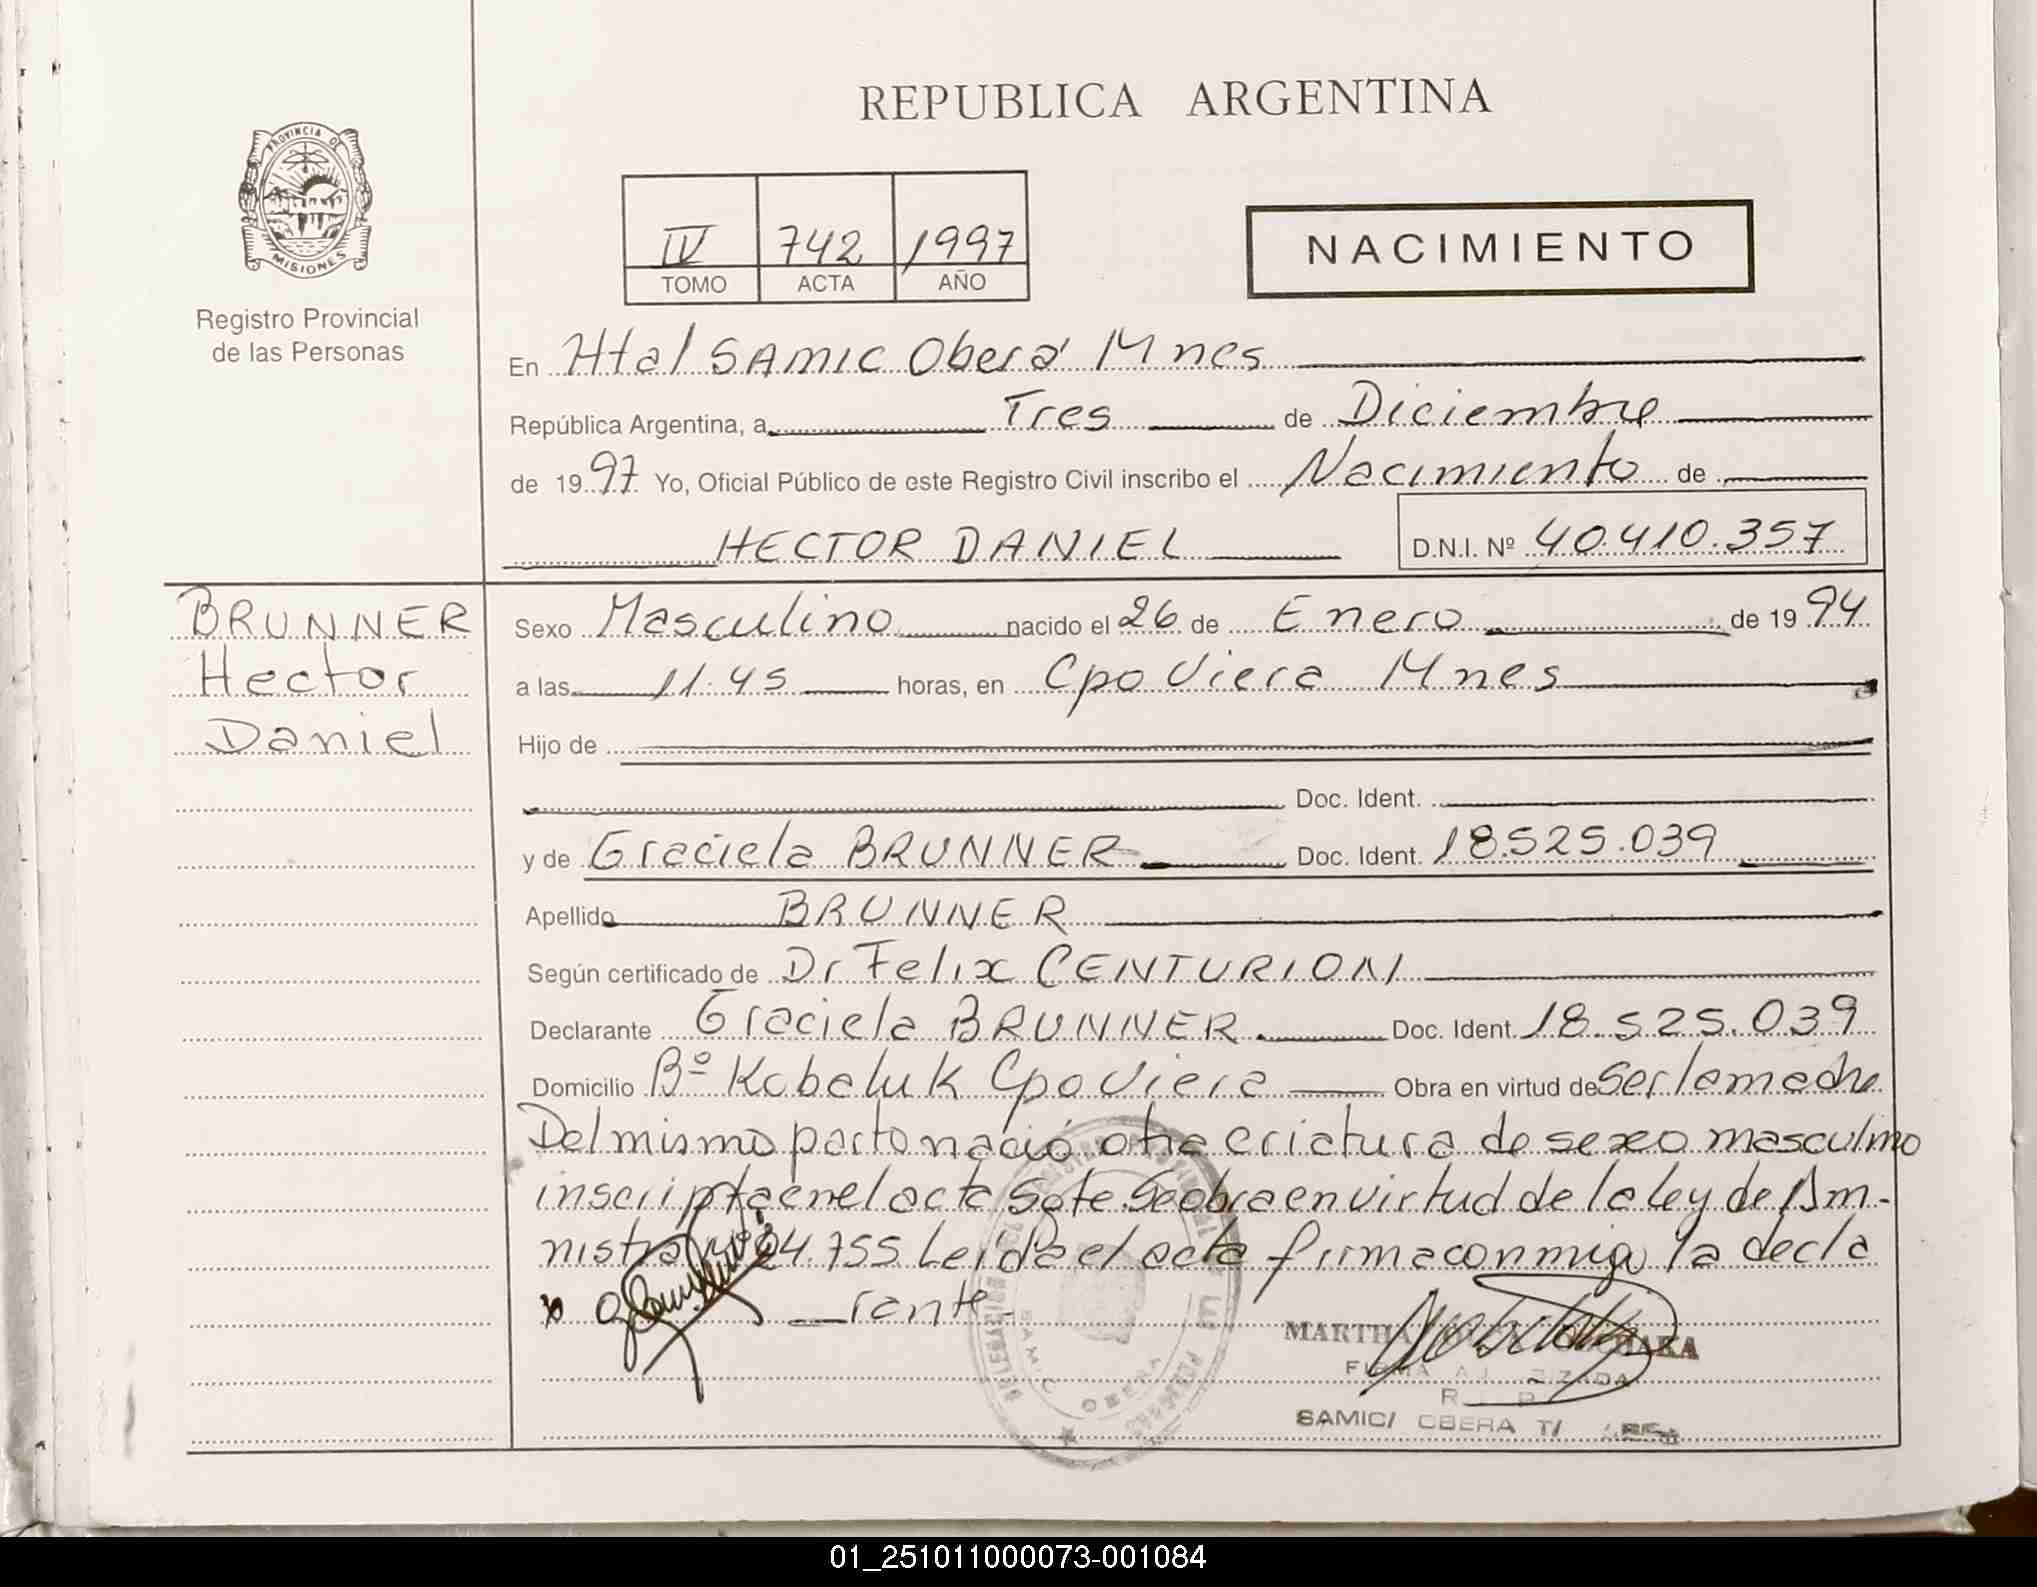 REPUBLICA ARGENTINA
PROVINCIA DE
MISIONES
Registro Provincial
de las Personas
IV 742 1997
TOMO ACTA AÑO
NACIMIENTO
En Htal SAMIC Oberá Mnes
República Argentina, a Tres de Diciembre
de 1997 Yo, Oficial Público de este Registro Civil inscribo el Nacimiento de
HECTOR DANIEL D.N.I. Nº 40.410.357
BRUNNER
Hector
Daniel
Sexo Masculino nacido el 26 de Enero de 1994
a las 11.45 horas, en Cpo Viera Mnes
Hijo de
Doc. Ident.
y de Graciela BRUNNER Doc. Ident. 18.525.039
Apellido BRUNNER
Según certificado de Dr Felix CENTURION
Declarante Graciela BRUNNER Doc. Ident. 18.525.039
Domicilio Bº Kabaluk Cpo Viera Obra en virtud de Ser la madre
Del mismo parto nació otra criatura de sexo masculino
inscripta en el acta Se obra en virtud de la ley de Am-
nistia Nº 24.755. Leida el acta firma conmigo la decla
rante.
MARTHA
FIRMA
SAMIC/ OBERA
SAMIC OBERA
01_251011000073-001084